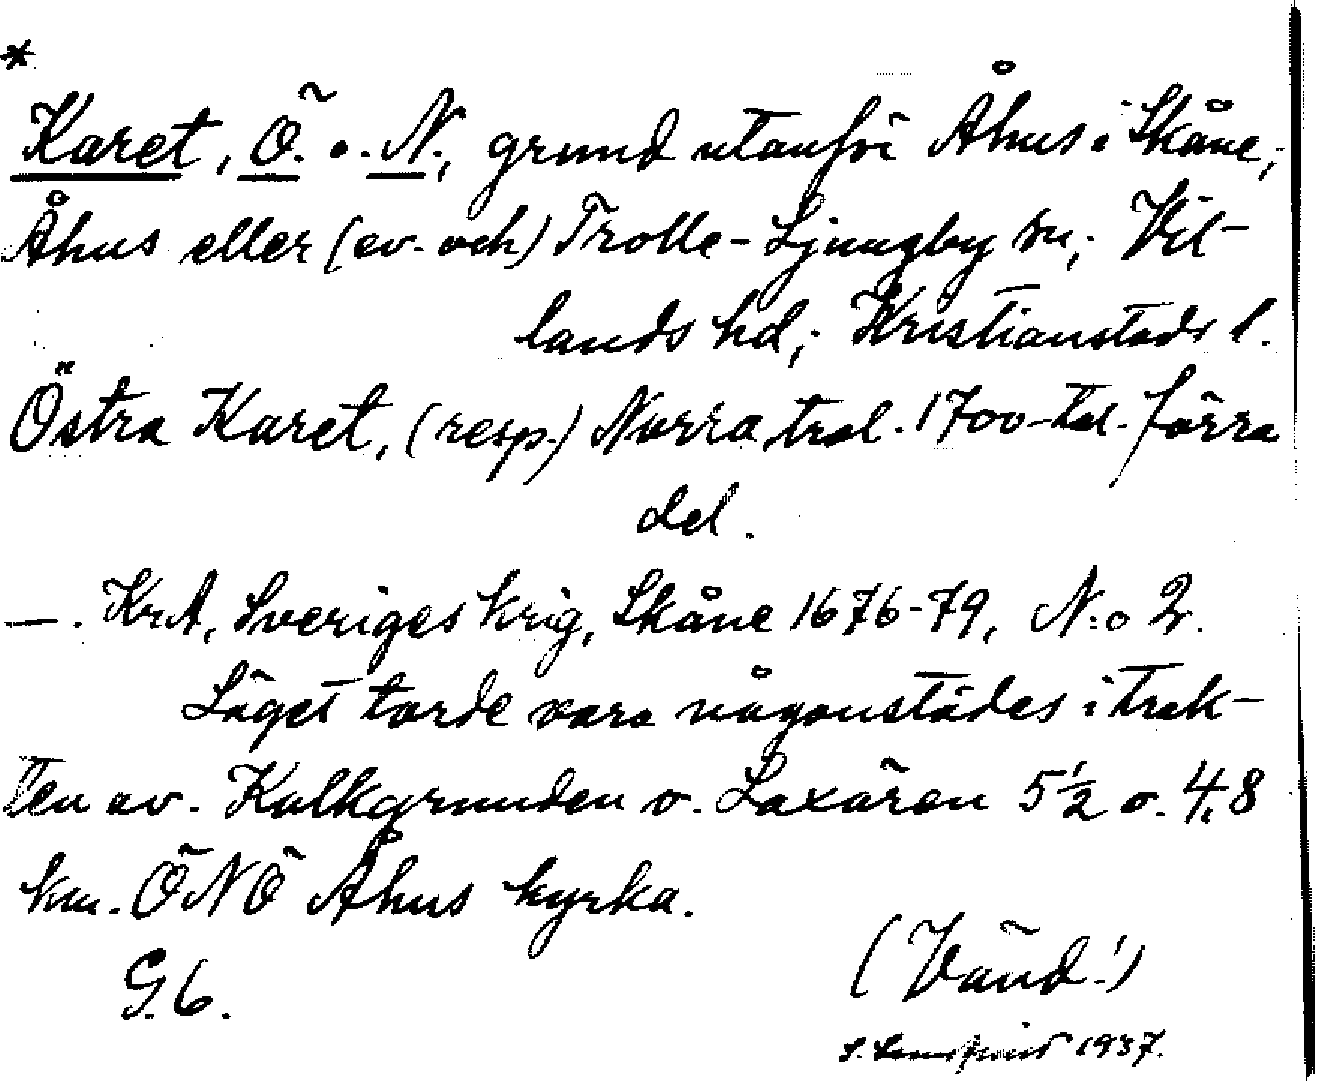 *
Karet, Ö. o. N., grund utanför Åhus i Skåne;
Åhus eller (ev. och) Trolle-Ljungby sn; Vil-
lands hd; Kristianstads l.
Östra Karet, (resp.) Norra, trol. 1700-tal. förra
del.
—. KrA, Sveriges krig, Skåne 1676-79, N:o 2.
Läget torde vara någonstädes i trak-
ten av. Kalkgrunden o. Laxören 5½ o. 4,8
km. ÖNÖ Åhus kyrka.
G. 6.
(Vänd!)
1937.